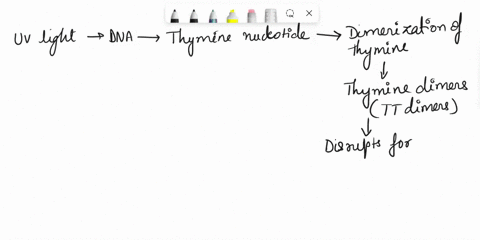 UV light → DNA → Thymine nucleotide → Dimerization of
thymine
↓
Thymine dimers
(TT dimers)
↓
Disrupts for